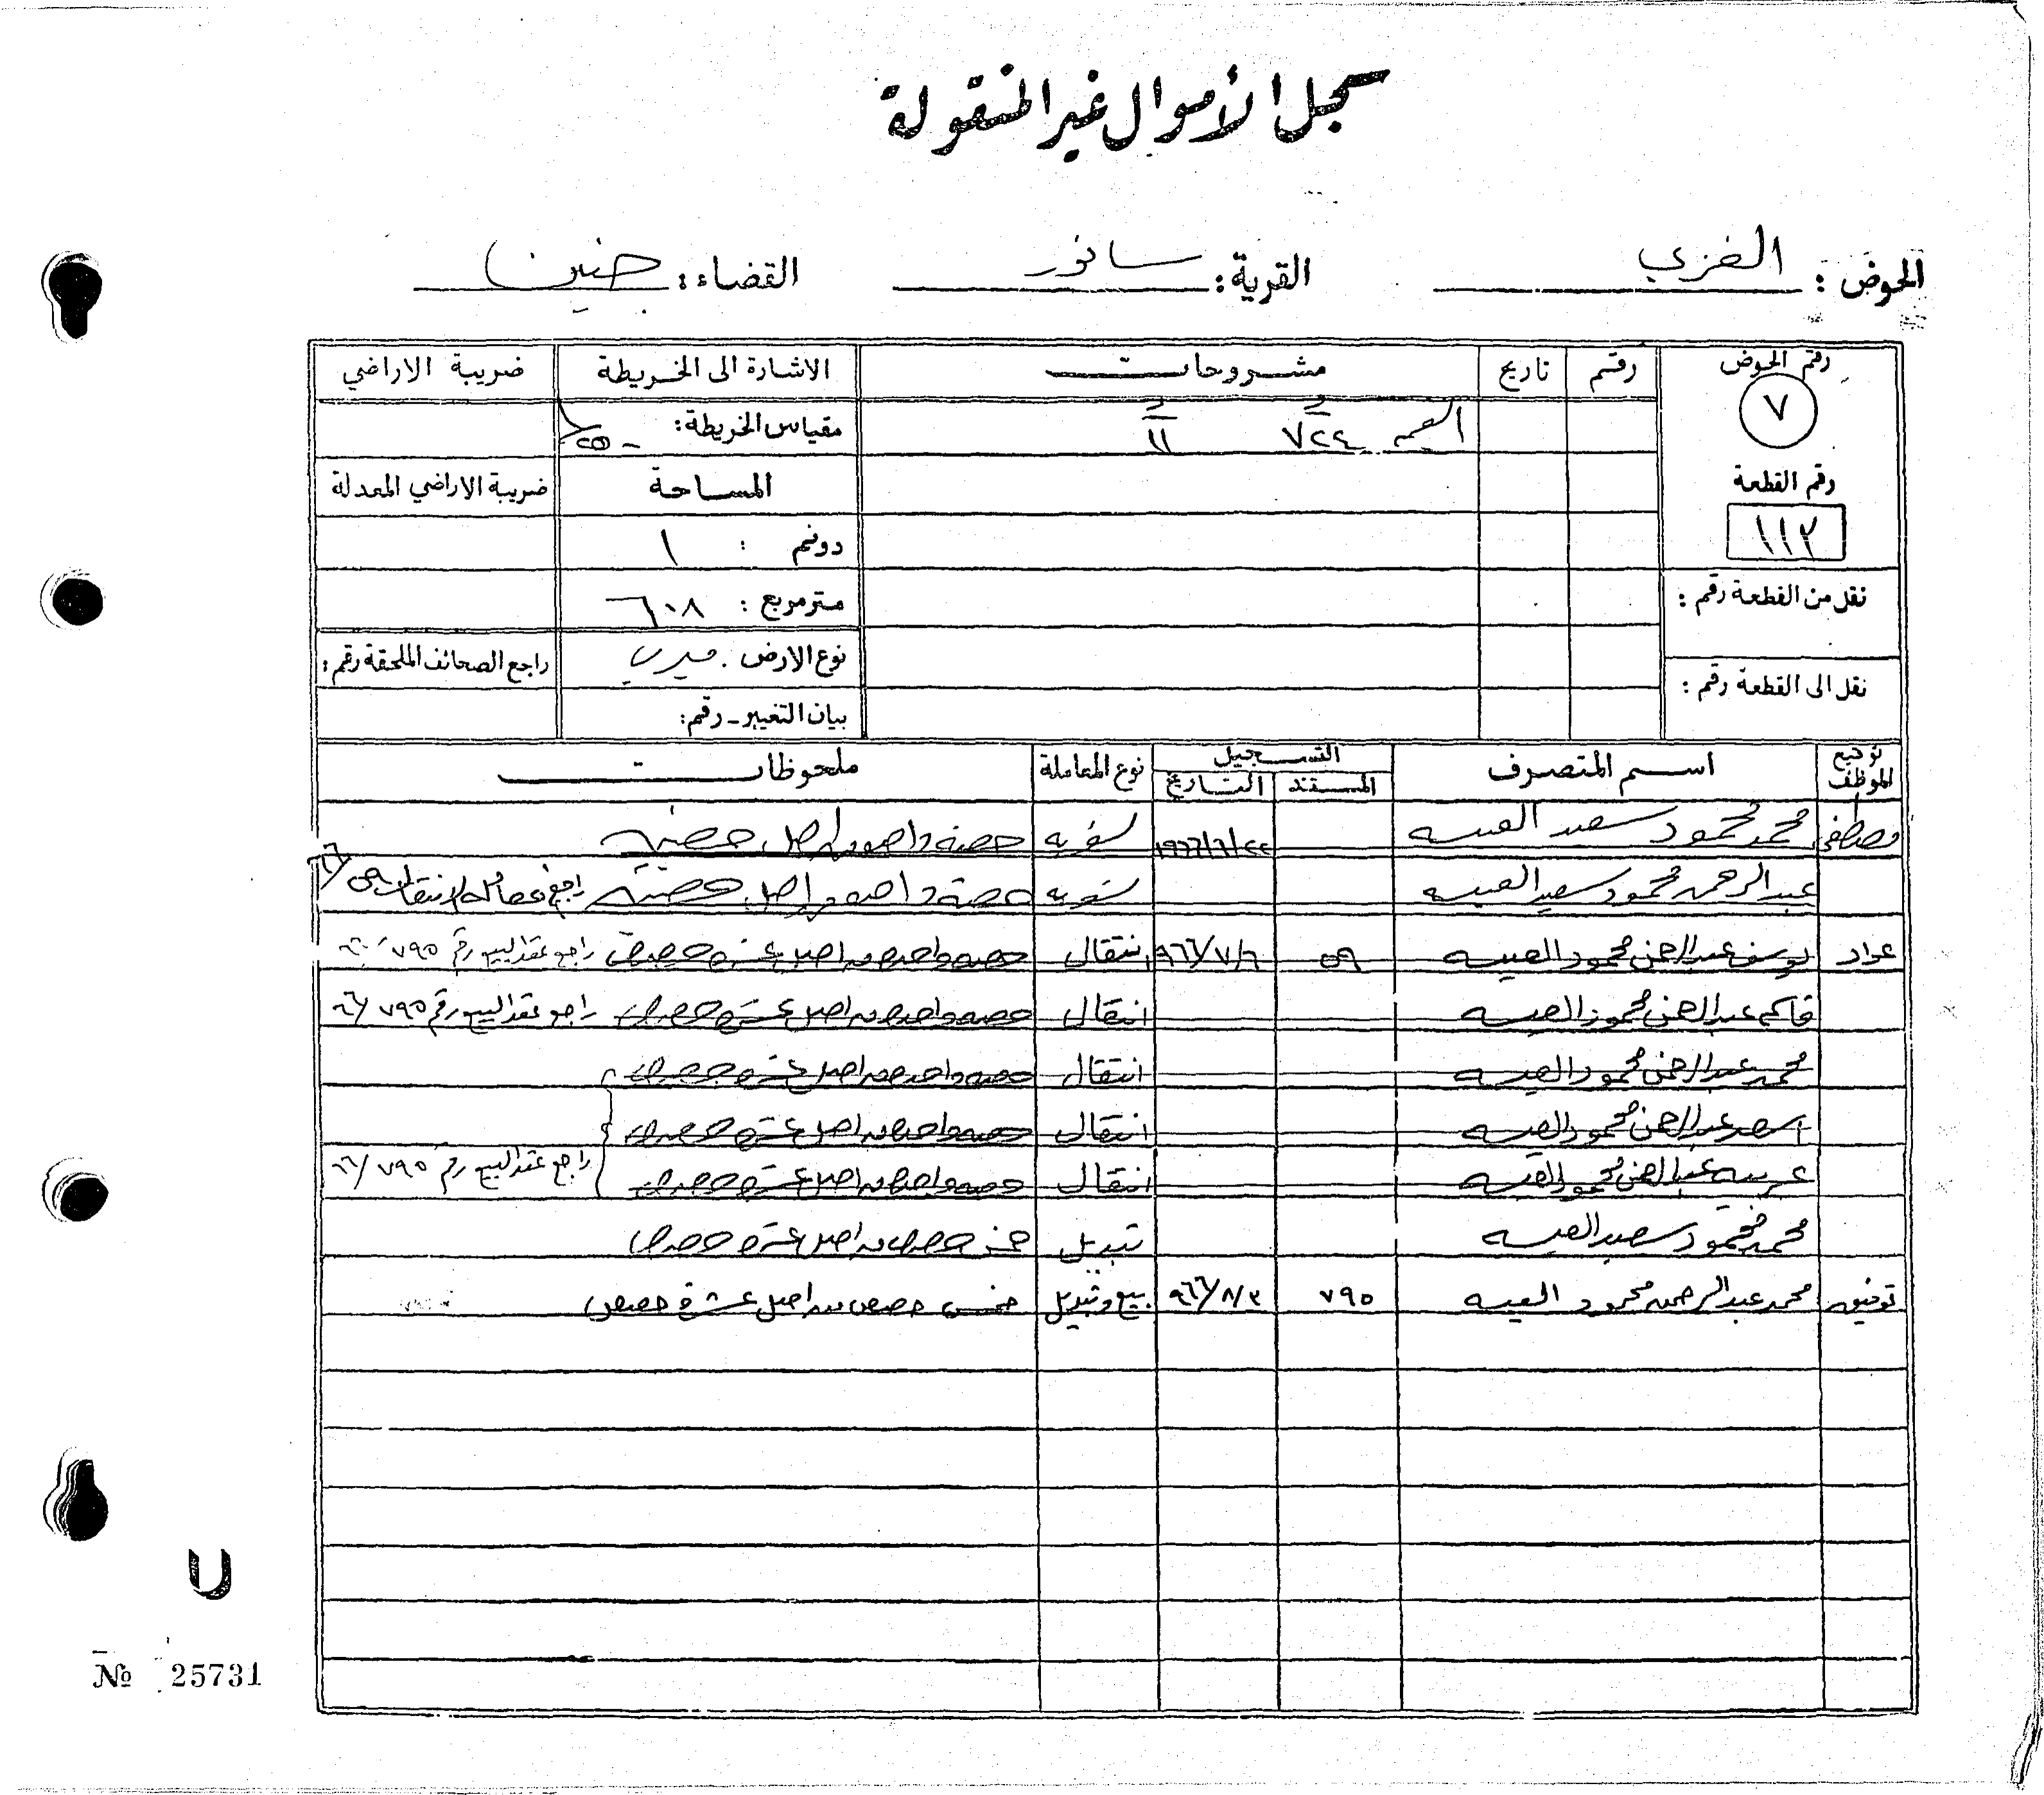 سجل الأموال غير المنقولة
الحوض : الغزي القرية : سانور القضاء : جنين
رقم الحوض رقم تاريخ مشروحات الاشارة الى الخريطة ضريبة الاراضي
٧ ٧٢٤ ١١ مقياس الخريطة :
رقم القطعة المساحة ضريبة الاراضي المعدلة
١١٢ دونم : ١
نقل من القطعة رقم : متر مربع : ٦٠٨
نوع الارض . ميري راجع الصحائف الملحقة رقم :
نقل الى القطعة رقم : بيان التغيير - رقم :
توقيع الموظف اسم المتصرف التسجيل نوع المعاملة ملحوظات
المستند التاريخ
مصطفى محمد محمود سعيد العيسه ١٩٦٦/٦/٢٢ تسويه حصة واحده من اصل حصتين
عبدالرحمن محمود سعيد العيسه تسويه حصة واحده من اصل حصتين راجع معاملة الانتقال ٥٩/٦٦
عواد يوسف عبدالرحمن محمود العيسه ٥٩ ٩٦٦/٧/٦ انتقال حصه واحده من اصل عشرة حصص راجع عقد البيع رقم ٧٩٥/٦٦
قاسم عبدالرحمن محمود العيسه انتقال حصه واحده من اصل عشرة حصص راجع عقد البيع رقم ٧٩٥/٦٦
محمد عبدالرحمن محمود العيسه انتقال حصه واحده من اصل عشرة حصص
اسعد عبدالرحمن محمود العيسه انتقال حصه واحده من اصل عشرة حصص
عبدالرحمن محمود العيسه انتقال حصه واحده من اصل عشرة حصص راجع عقد البيع رقم ٧٩٥/٦٦
محمد محمود سعيد العيسه تبديل خمس حصص من اصل عشرة حصص
توفيق محمد عبدالرحمن محمود العيسه ٧٩٥ ٩٦٦/٨/٣ بيع وتبديل خمس حصص من اصل عشرة حصص
U
№ 25731